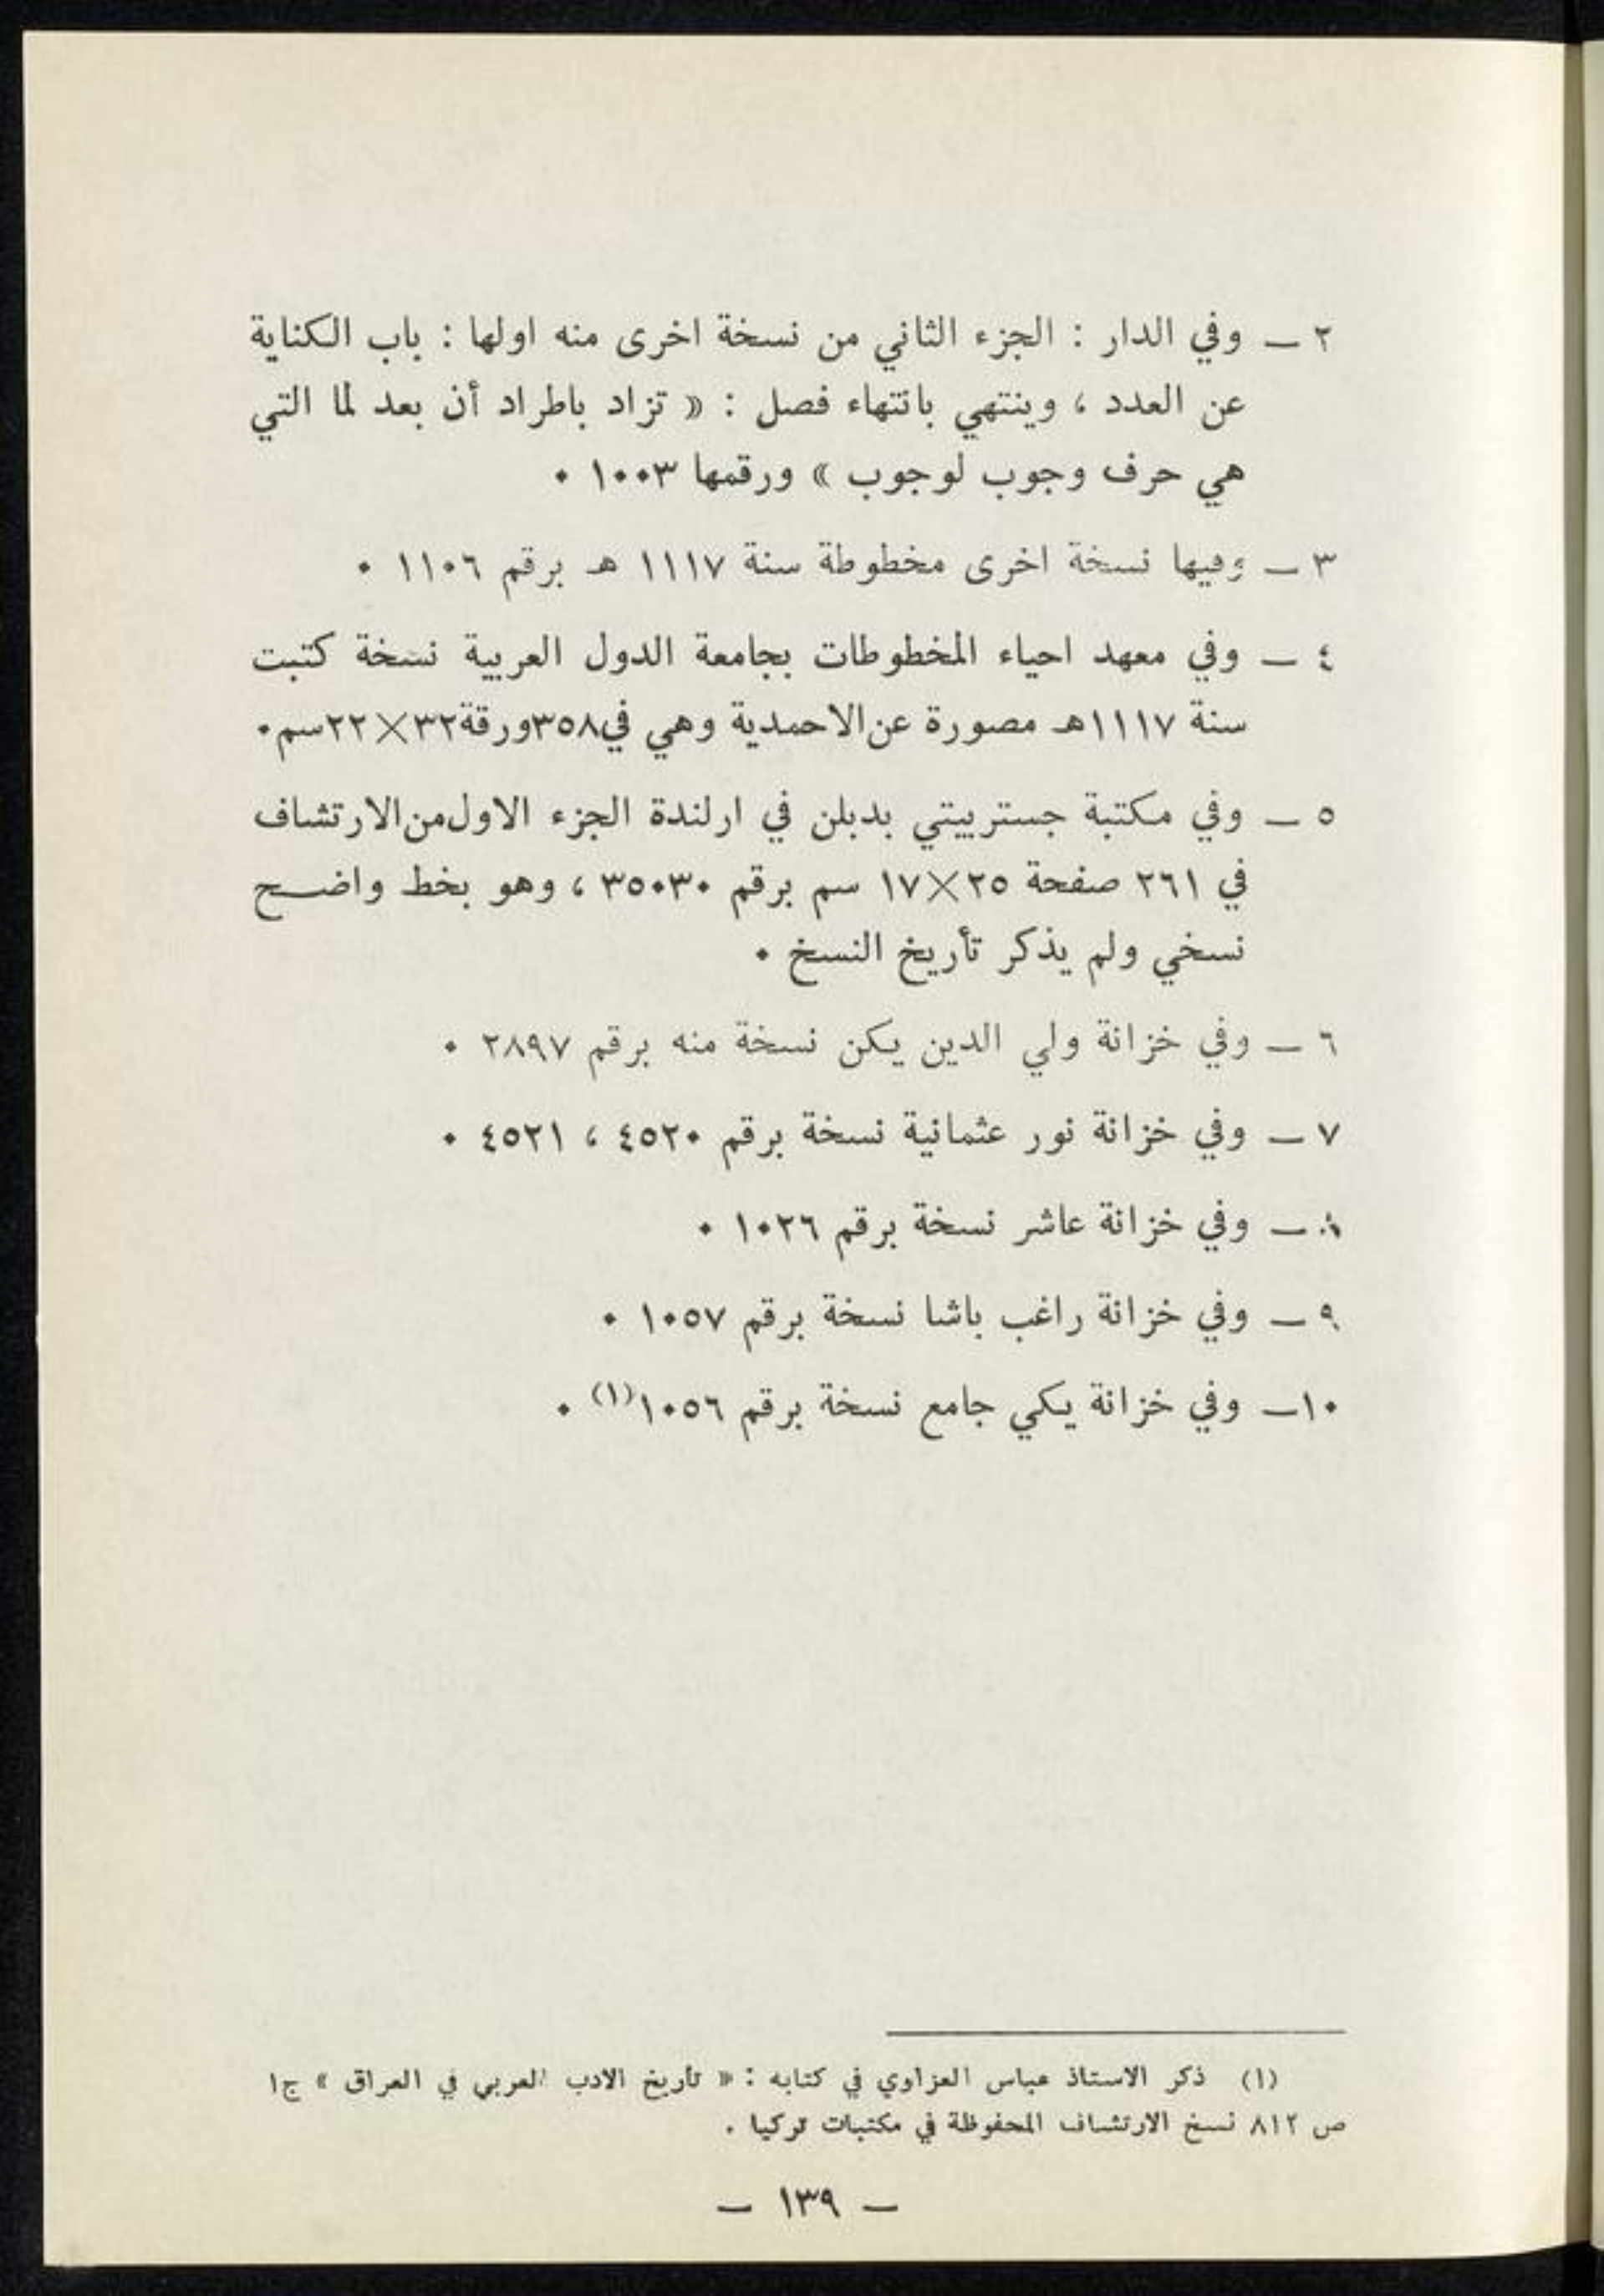 ٢ — وفي الدار : الجزء الثاني من نسخة اخرى منه اولها : باب الكناية
عن العدد ، وينتهي بانتهاء فصل : « تزاد باطراد أن بعد لما التي
هي حرف وجوب لوجوب » ورقمها ١٠٠٣ ٠
٣ — وفيها نسخة اخرى مخطوطة سنة ١١١٧ هـ برقم ١١٠٦ ٠
٤ — وفي معهد احياء المخطوطات بجامعة الدول العربية نسخة كتبت
سنة ١١١٧هـ مصورة عن الاحمدية وهي في ٣٥٨ورقة ٣٢×٢٢سم٠
٥ — وفي مكتبة جستربيتي بدبلن في ارلندة الجزء الاول من الارتشاف
في ٢٦١ صفحة ٢٥×١٧ سم برقم ٣٥٠٣٠ ، وهو بخط واضح
نسخي ولم يذكر تأريخ النسخ ٠
٦ — وفي خزانة ولي الدين يكن نسخة منه برقم ٢٨٩٧ ٠
٧ — وفي خزانة نور عثمانية نسخة برقم ٤٥٢٠ ، ٤٥٢١ ٠
٨ — وفي خزانة عاشر نسخة برقم ١٠٢٦ ٠
٩ — وفي خزانة راغب باشا نسخة برقم ١٠٥٧ ٠
١٠— وفي خزانة يكي جامع نسخة برقم ١٠٥٦(١) ٠
(١) ذكر الاستاذ عباس العزاوي في كتابه : « تأريخ الادب العربي في العراق » ج١
ص ٨١٢ نسخ الارتشاف المحفوظة في مكتبات تركيا .
— ١٣٩ —